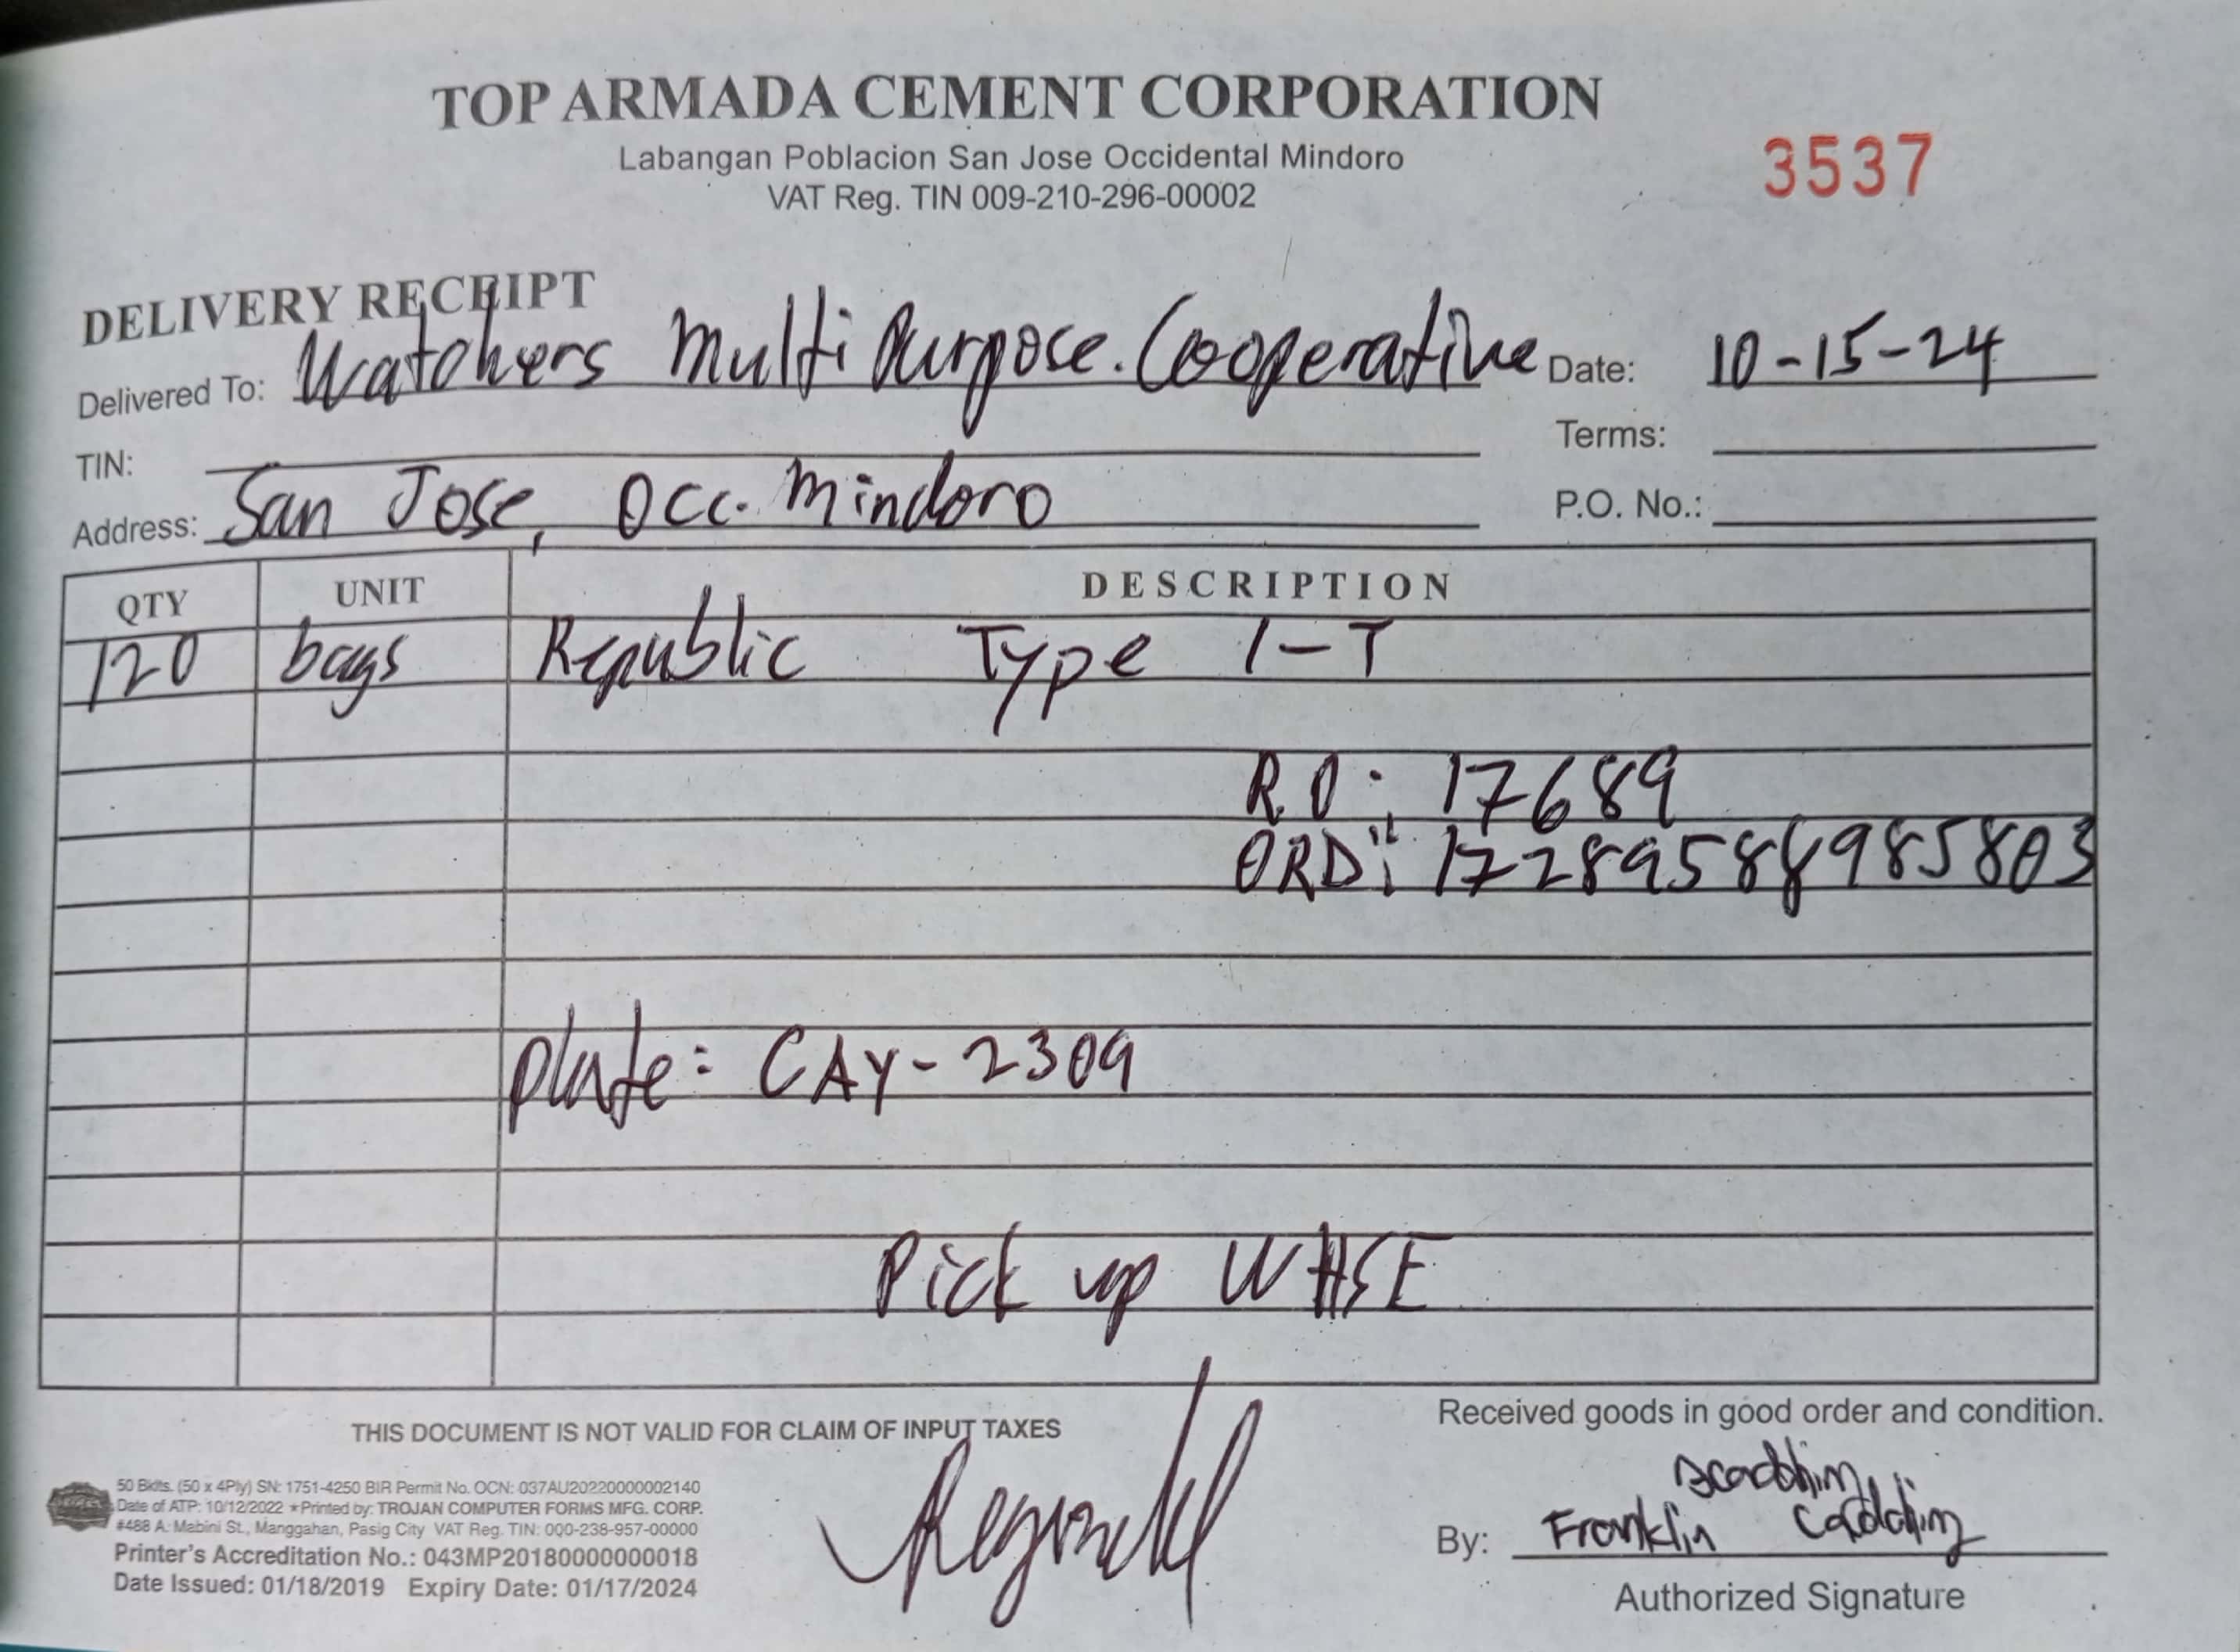 TOP ARMADA CEMENT CORPORATION
Labangan Poblacion San Jose Occidental Mindoro
VAT Reg. TIN 009-210-296-00002
3537
DELIVERY RECEIPT
Delivered To: Watchers Multi Purpose. Cooperative Date: 10-15-24
TIN: Terms:
Address: San Jose, Occ. Mindoro P.O. No.:
QTY UNIT DESCRIPTION
120 bags Republic Type 1-T
R.O: 17689
ORD#: 17289588985803
plate: CAY-2309
Pick up WHSE
THIS DOCUMENT IS NOT VALID FOR CLAIM OF INPUT TAXES
Received goods in good order and condition.
50 Bklts. (50 x 4Ply) SN: 1751-4250 BIR Permit No. OCN: 037AU20220000002140
Date of ATP: 10/12/2022 ★Printed by: TROJAN COMPUTER FORMS MFG. CORP.
#488 A. Mabini St., Manggahan, Pasig City VAT Reg. TIN: 000-238-957-00000
Printer's Accreditation No.: 043MP20180000000018
Date Issued: 01/18/2019 Expiry Date: 01/17/2024
By: Franklin
Authorized Signature